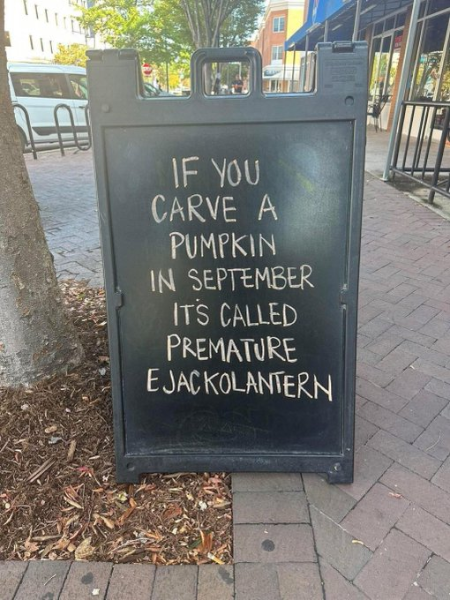 IF YOU
CARVE A
PUMPKIN
IN SEPTEMBER
IT'S CALLED
PREMATURE
EJACKOLANTERN